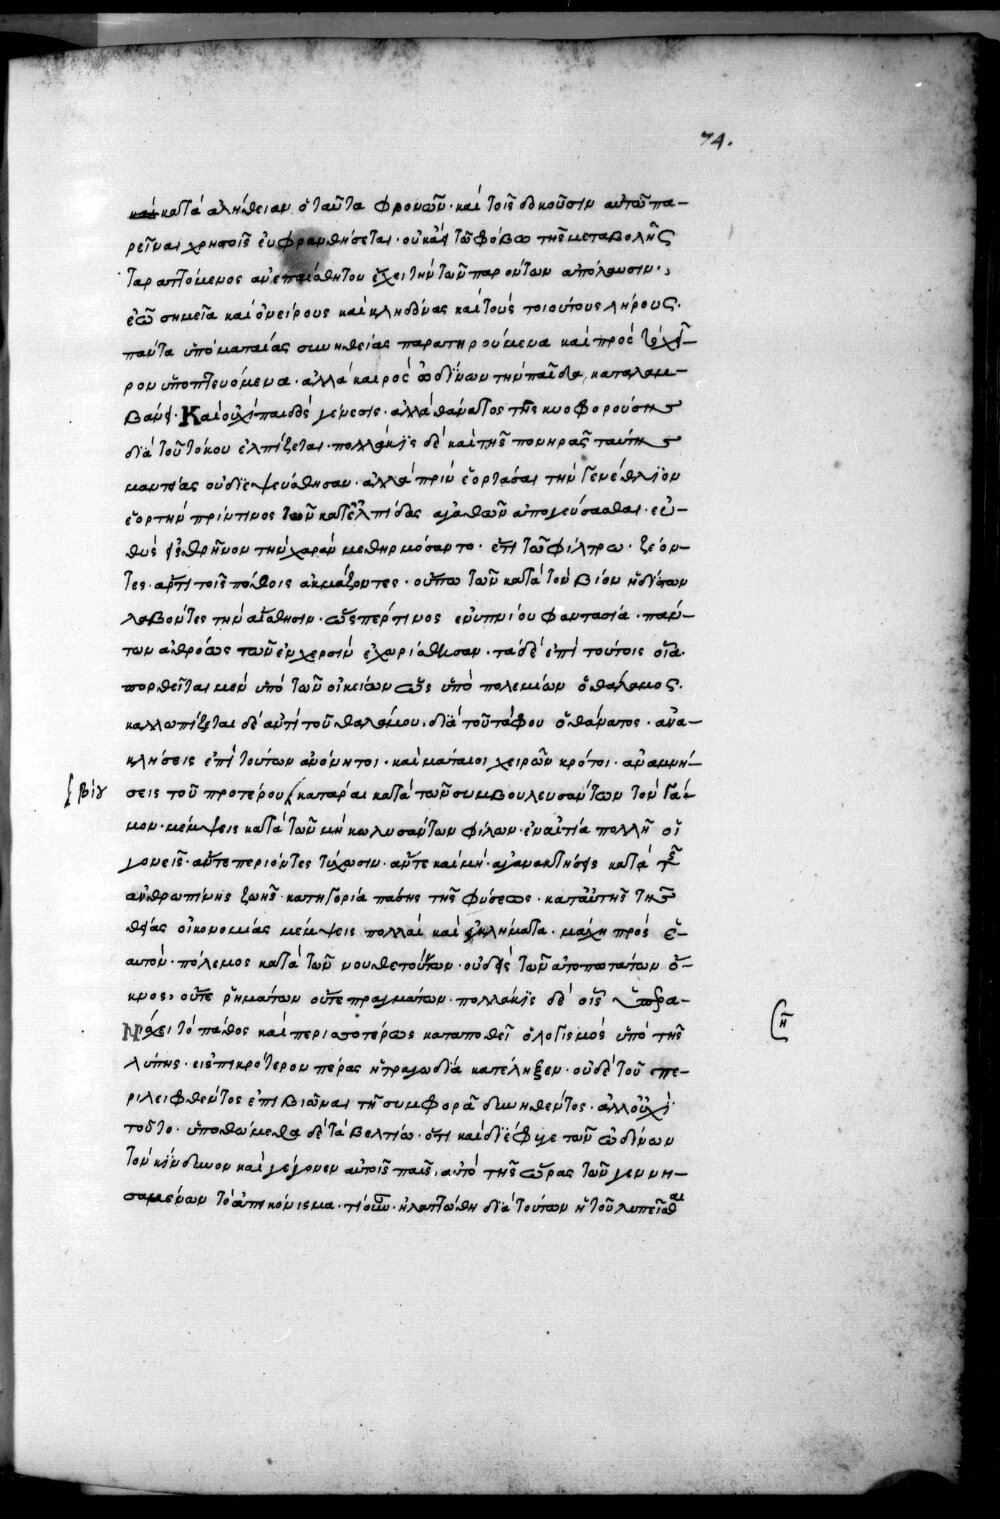 74.
και κατά αλήθειαν ὁ ταῦτα φρονῶν· καί τοῖς δοκοῦσιν αὐτῶ πα-
ρεῖναι χρηστοῖς εὐφρανθήσεται· οὐκἀεί τῶ φόβω τῆς μεταβολῆς
ταραττόμενος ἀνεπαίσθητον ἔχει τήν τῶν παρόντων απόλαυσιν·
ἐῶ σημεῖα καί ὀνείρους καί κληδόνας καί τούς τοιούτους λήρους·
πάντα ὑπό ματαίας συνηθείας παρατηρούμενα καί πρός τό χεῖ-
ρον ὑποπτευόμενα· αλλά καιρός ὠδίνων τήν παῖδα καταλαμ-
βάνει· Καί οὐχί παιδός γένεσις· αλλά θάνατος τῆς κυοφορούσης
διά τοῦ τόκου ελπίζεται· πολλάκις δέ καί τῆς πονηρᾶς ταύτης
μαντείας οὐ διεψεύσθησαν· αλλά πρίν ἑορτάσαι τήν γενέθλιον
ἑορτήν πρίν τινος τῶν κατ' ἐλπίδας αγαθῶν απογεύσασθαι· εὐ-
θύς εἰς θρῆνον τήν χαράν μεθηρμόσαντο· ἔτι τῶ φίλτρω· ζέον-
τες· ἄρτι τοῖς πόθοις ακμάζοντες· οὔπω τῶν κατά τόν βίον ἡδίστων
λαβόντες τήν αἴσθησιν· ὥσπερ τινος ενυπνίου φαντασία· πάν-
των αθρόως τῶν ἐν χερσίν ἐχωρίσθησαν· τά δέ ἐπί τούτοις οἷα·
πορθεῖται μέν ὑπό τῶν οἰκείων ὡς ὑπό πολεμίων ὁ θάλαμος·
καλλωπίζεται δέ αντί τοῦ θαλάμου, διά τοῦ τάφου ὁ θάνατος· ανα-
κλήσεις ἐπί τούτων ανόνητοι· καί μάταιοι χειρῶν κρότοι· αναμνή-
βίου
σεις τοῦ προτέρου κατάραι κατά τῶν συμβουλευσάντων τόν γά-
μον· μέμψεις κατά τῶν μή κωλυσάντων φίλων· ἐν αἰτία πολλῆ οἱ
γονεῖς· ἄντε περιόντες τύχωσιν· ἄντε καί μή· αγανάκτησις κατά τῆς
ανθρωπίνης ζωῆς· κατηγορία πάσης τῆς φύσεως· κατ' αὐτῆς τῆς
θείας οἰκονομίας μέμψεις πολλαί καί ἐγκλήματα· μάχη πρός ἑ-
αυτόν· πόλεμος κατά τῶν νουθετούντων· οὐδείς τῶν ατοπωτάτων ὄ-
κνος, οὔτε ῥημάτων οὔτε πραγμάτων· πολλάκις δέ οἷς ὑπερα-
ἢ
νίσχει τό πάθος καί περισσοτέρως καταποθεῖ ὁ λογισμός ὑπό τῆς
λύπης· εἰς πικρότερον πέρας ἡ τραγωδία κατέληξεν· οὐδέ τοῦ πε-
ριλειφθέντος ἐπιβιῶναι τῆ συμφορᾶ δυνηθέντος· αλλ' οὐχί
τοῦτο· ὑποθώμεθα δέ τά βελτίω· ὅτι καί διέφυγε τῶν ὠδίνων
τόν κίνδυνον καί γέγονεν αὐτοῖς παῖς, αὐτό τῆς ὥρας τῶν γεννη-
σαμένων τό απεικόνισμα· τί οὖν· ἠλαττώθη διά τούτων ἡ τοῦ λυπεῖσθαι